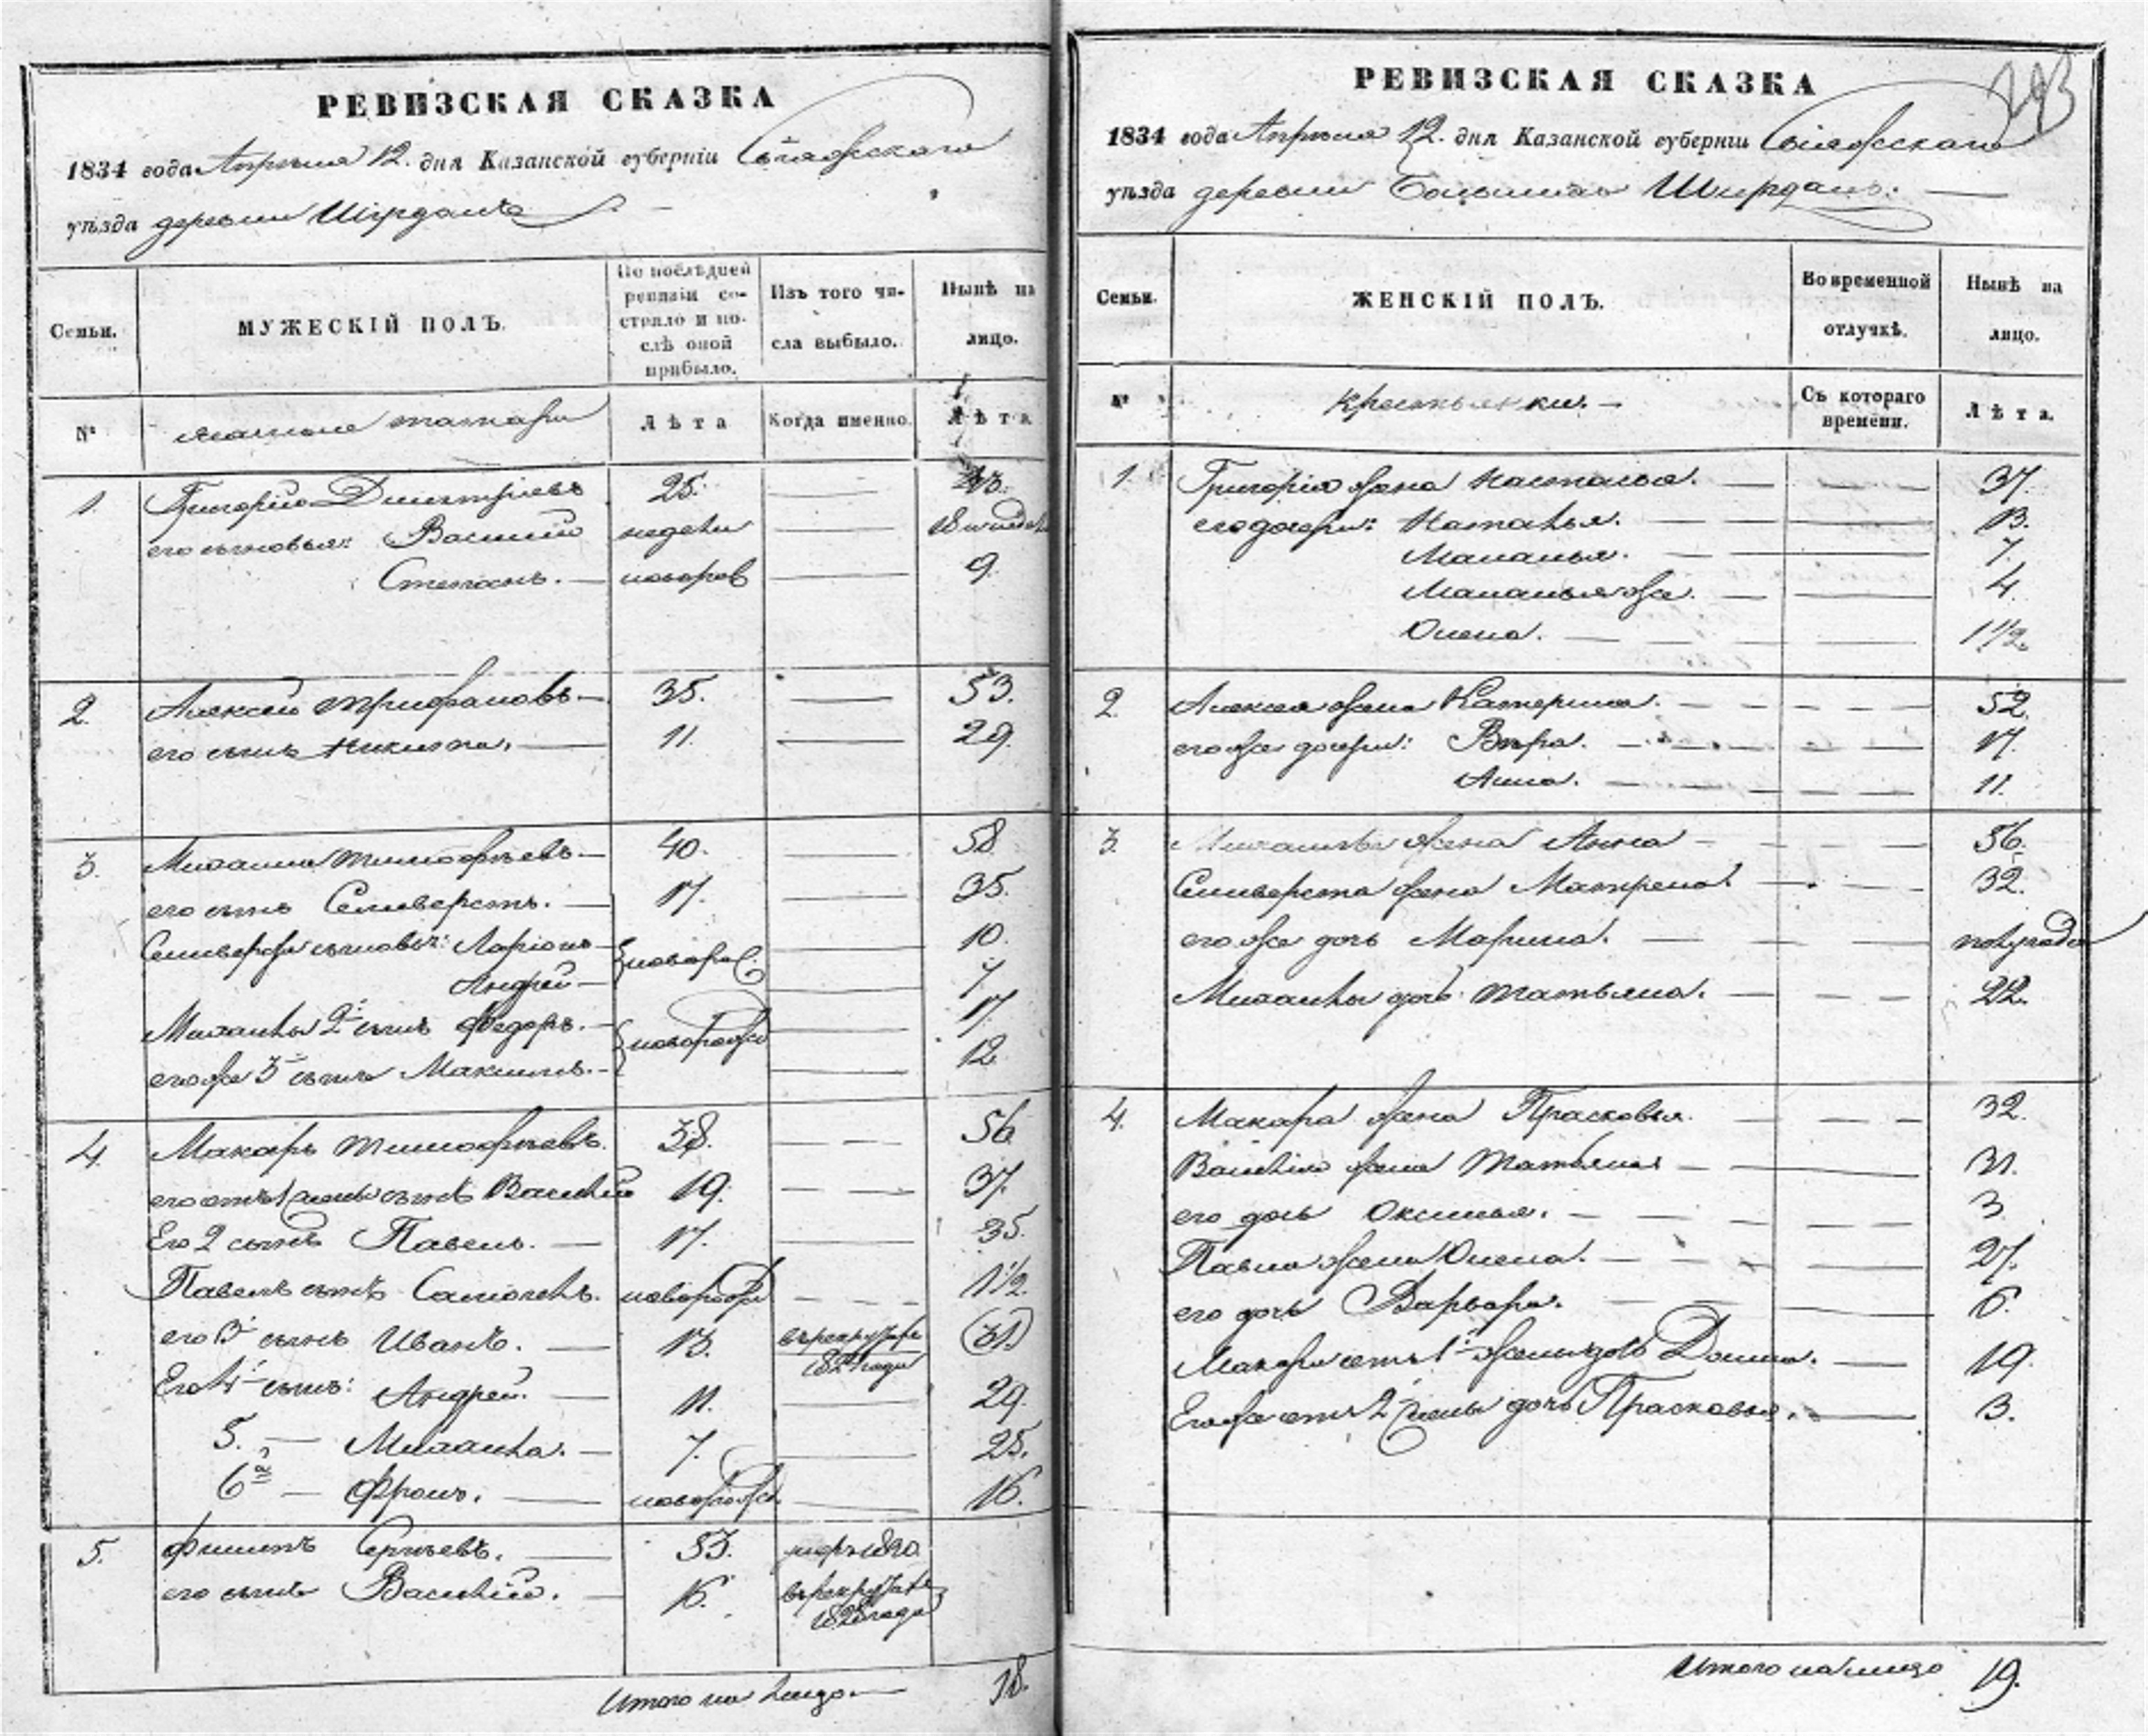 РЕВИЗСКАЯ СКАЗКА
1834 года Апреля 12. дня Казанской губернiи Свiяжскаго
уѣзда деревни Ширданъ
Семьи.
МУЖЕСКІЙ ПОЛЪ.
По послѣдней ревизiи состояло и послѣ оной прибыло.
Изъ того числа выбыло.
Нынѣ на лицо.
№
татары
Лѣта
Когда именно.
Лѣта
1. Григорiй Дмитрiевъ 25. 43.
его сыновья: Василий недели 18
Степанъ. новорож 9
2. Алексей Трифановъ 35. 53.
его сынъ Никита. 11. 29.
3. Михаила Тимофѣевъ 40. 58
его сынъ Селиверстъ. 17. 35.
Селиверста сыновья: Ларiонъ 10.
Андрей новорож. 7
Михайлы 2й сынъ Федоръ. 17
его же 3 сынъ Максимъ. новорож 12
4. Макаръ Тимофѣевъ. 38. 56
его отъ 1 жены сынъ Василiй 19. 37.
Его 2 сынъ Павелъ. 17. 35.
Павелъ сынъ Самойлъ. новорож 1 1/2
его 3 сынъ Иванъ. 13. в рекруты 182 года (31)
Его 4 сынъ: Андрей. 11. 29.
5. Михайла. 7. 25.
6й Фролъ. новорож. 16.
5. Филипъ Сергѣевъ. 53. умръ 1820.
его сынъ Василiй. 16. в рекруты 1828 года
Итого на лицо 18.
РЕВИЗСКАЯ СКАЗКА
1834 года Апреля 12. дня Казанской губернiи Свiяжскаго
уѣзда деревни Большихъ Ширданъ.
Семьи.
ЖЕНСКІЙ ПОЛЪ.
Во временной отлучкѣ.
Нынѣ на лицо.
№
крестьянки.
Съ котораго времени.
Лѣта.
1 Григорiя жена Настасья. 37.
его дочери: Наталья. 13.
Маланья. 7.
Маланья же. 4.
Олена. 1 1/2.
2. Алексея жена Катерина. 52.
его же дочери: Вѣра. 17.
Анна. 11.
3. Михайлы жена Анна 56.
Селиверста жена Матрена. 32.
его же дочь Марина. полугода
Михайлы дочь Татьяна. 22.
4. Макара жена Прасковья. 32.
Василiя жена Татьяна 31.
его дочь Оксинья. 3
Павла жена Олена. 27.
его дочь Варвара. 6.
Макара отъ 1й жены дочь Домна. 19.
Его же отъ 2 жены дочь Прасковья. 3.
Итого на лицо 19.